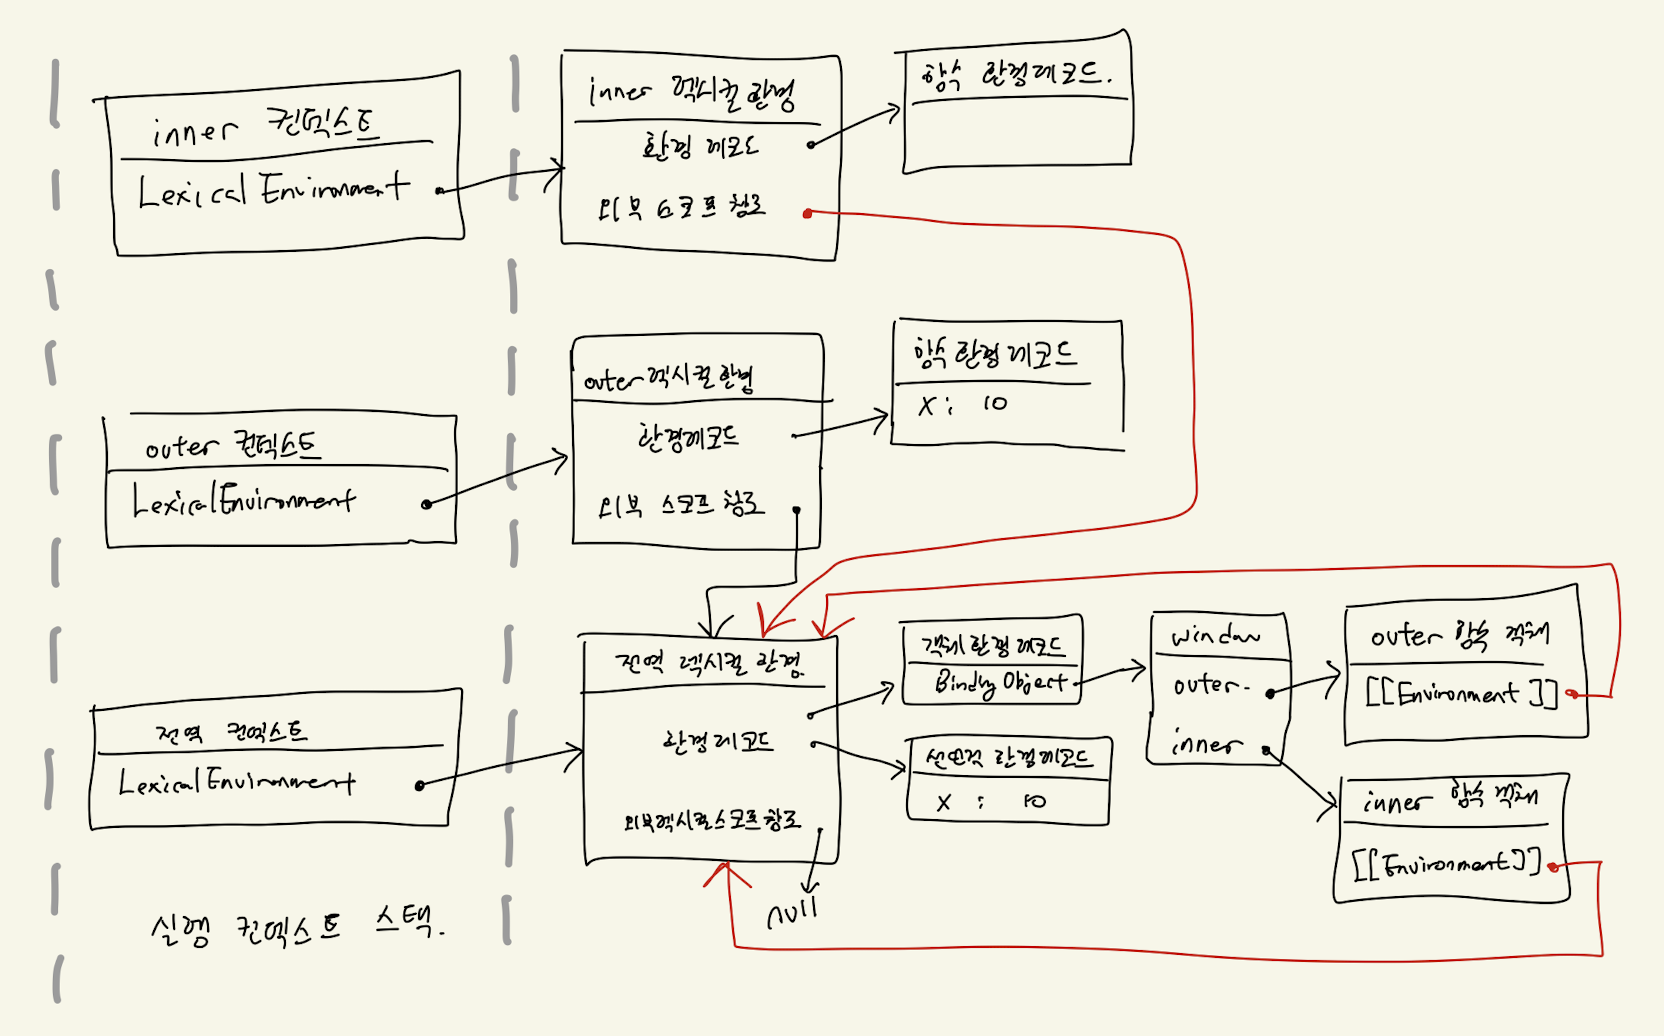 inner 컨텍스트
Lexical Environment
inner 렉시컬 환경
환경 레코드
외부 스코프 참조
함수 환경 레코드.
outer 컨텍스트
Lexical Environment
outer 렉시컬 환경
환경 레코드
외부 스코프 참조
함수 환경 레코드
x : 10
전역 컨텍스트
Lexical Environment
전역 렉시컬 환경
환경 레코드
외부렉시컬스코프참조
null
객체 환경 레코드
Binding Object
선언적 환경레코드
x : 10
window
outer
inner
outer 함수 객체
[[Environment]]
inner 함수 객체
[[Environment]]
실행 컨텍스트 스택.